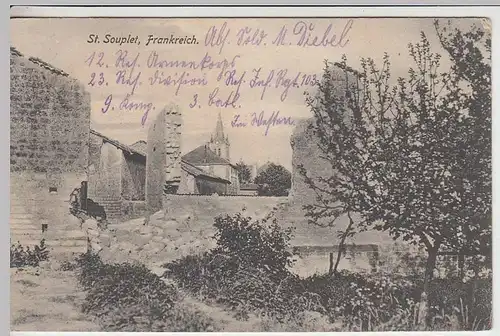 St. Souplet, Frankreich. Abs. Sold. M. Diebel
12. Res. Armeekorps
23. Res. Division Res. Inf. Rgt. 103
9. Komp. 3. Batl.
Im Westen